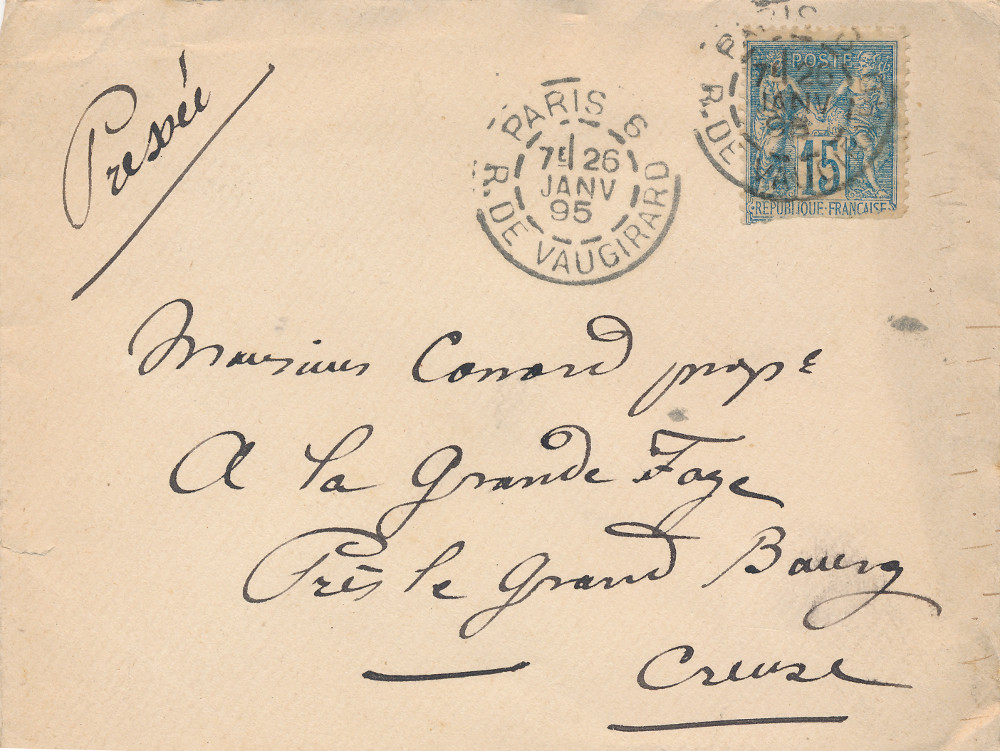 Pressée
PARIS 6
7E 26
JANV
95
R. DE VAUGIRARD
PARIS 6
7E 26
JANV
95
R. DE VAU
POSTE
15
REPUBLIQUE FRANÇAISE
Monsieur Conord prope
A la Grande Faye
Près le Grand Bourg
Creuse